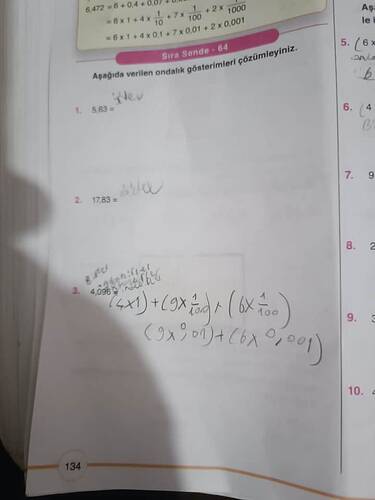 6,472 = 6 + 0,4 + 0,07 + 0,0
= 6 x 1 + 4 x 1/10 + 7 x 1/100 + 2 x 1/1000
= 6 x 1 + 4 x 0,1 + 7 x 0,01 + 2 x 0,001
Sıra Sende - 64
Aşağıda verilen ondalık gösterimleri çözümleyiniz.
1. 5,63 =
2. 17,83 =
3. 4,096 =
(4x1)+(9x1/100)+(6x1/100)
(9x0,01)+(6x0,001)
134
Aş
le k
5. (6x
6
6. (4
7. 9
8. 2
9. 3
10. 4